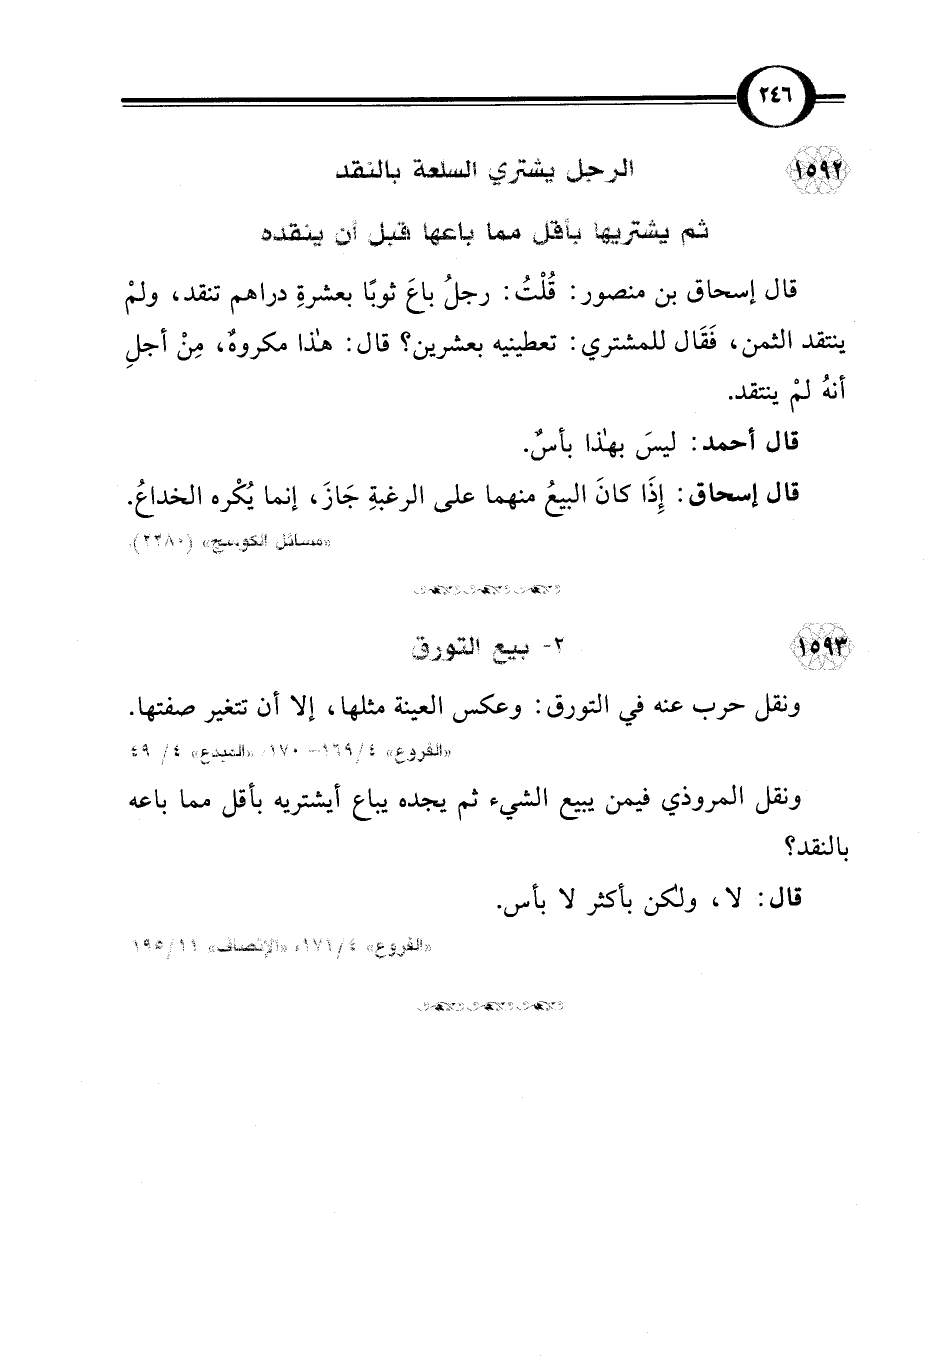 ٢٤٦
١٥٩٢
الرجل يشتري السلعة بالنقد
ثم يشتريها بأقل مما باعها قبل أن ينقده
قال إسحاق بن منصور: قُلْتُ: رجلُ باعَ ثوبًا بعشرةِ دراهم تنقد، ولمْ
ينتقد الثمن، فَقَال للمشتري: تعطينيه بعشرين؟ قال: هذا مكروهٌ، مِنْ أجلِ
أنهُ لمْ ينتقد.
قال أحمد: ليسَ بهذا بأسٌ.
قال إسحاق: إِذَا كانَ البيعُ منهما على الرغبةِ جَازَ، إنما يُكْره الخداعُ.
«مسائل الكوسج» (٢٢٨٠).
١٥٩٣
٢- بيع التورق
ونقل حرب عنه في التورق: وعكس العينة مثلها، إلا أن تتغير صفتها.
«الفروع» ١٦٩/٤- ١٧٠، «المبدع» ٤/ ٤٩
ونقل المروذي فيمن يبيع الشيء ثم يجده يباع أيشتريه بأقل مما باعه
بالنقد؟
قال: لا، ولكن بأكثر لا بأس.
«الفروع» ١٧١/٤، «الإنصاف» ١٩٥/١١